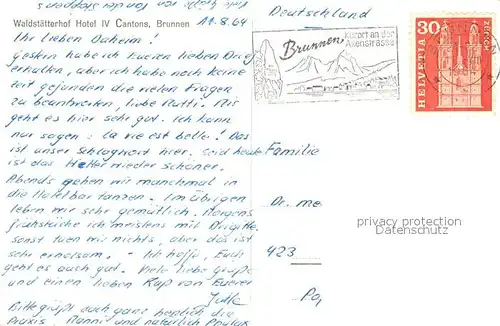 Waldstätterhof Hotel IV Cantons, Brunnen
11.8.64
Ihr lieben Daheim!
Gestern habe ich Eueren lieben Brief
erhalten, aber ich habe noch keine
Zeit gefunden die vielen Fragen
zu beantworten, liebe Mutti. Mir
geht es hier sehr gut. Ich kann
nur sagen: la vie est belle! Das
ist unser Schlagwort hier. Seid heute
ist das Wetter wieder schöner.
Abends gehen wir manchmal in
die Hotelbar tanzen. Im übrigen
leben wir sehr gemütlich. Morgens
frühstücke ich meistens mit Brigitte,
sonst tuen wir nichts, aber das ist
sehr erholsam. - Ich hoffe, Euch
geht es auch gut. Viele liebe Grüße
und einen lieben Kuß von Euerer
Jutta
Bitte grüßt auch ganz herzlich die
Praxis, Manni und natürlich
Deutschland
Brunnen
Kurort an der
Axenstrasse
HELVETIA 30
ZÜRICH
Familie
Dr. me
423
privacy protection
Datenschutz